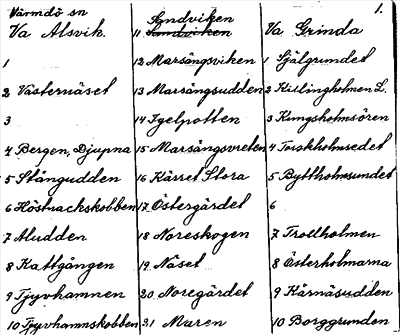 1.
Värmdö sn
Va Alsvik.
1
2 Västernäset
3
4 Bergen, Djupna
5 Stångudden
6 Höstnackskobben
7 Aludden
8 Kattgången
9 Tjyvhamnen
10 Tjyvhamnskobben
Sandviken
11 Sandviken
12 Marsängsviken
13 Marsängsudden
14 Igelpotten
15 Marsängsvreten
16 Kärret Stora
17 Östergärdet
18 Noreskogen
19 Näset
20 Noregärdet
21 Muren
Va Grinda
1 Själgrundet
2 Killingholmen L.
3 Kungsholmsören
4 Torskholmsedet
5 Byttholmsundet
6
7 Trollholmen
8 Österholmarna
9 Kårnäsudden
10 Borggrunden